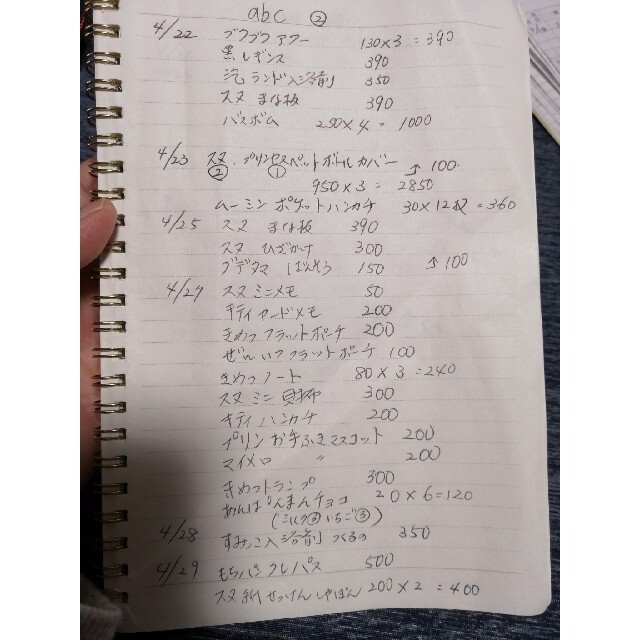 abc ②
4/22 ブクブクアワー 130×3 = 390
黒レギンス 390
泡ランド入溶剤 350
スヌ まな板 390
バスボム 250×4 = 1000
4/23 スヌ、プリンセスペットボトルカバー ↑100
② ①
950×3 = 2850
ムーミン ポケットハンカチ 30×12枚 = 360
4/25 スヌ まな板 390
スヌ ひざかけ 300
グデタマ ばんそう 150 ↑100
4/27 スヌミニメモ 50
キティ カードメモ 200
きめつフラットポーチ 200
ぜんいつフラットポーチ 100
きめつノート 80×3 = 240
スヌミニ財布 300
キティハンカチ 200
プリンお手ふきマスコット 200
マイメロ 〃 200
きめつトランプ 300
あんぱんまんチョコ 20×6=120
(ミルク③いちご③)
4/28 すみっこ入溶剤 つくるの 350
4/29 もちパンクレパス 500
スヌ紙せっけんしゃぼん 200×2 = 400